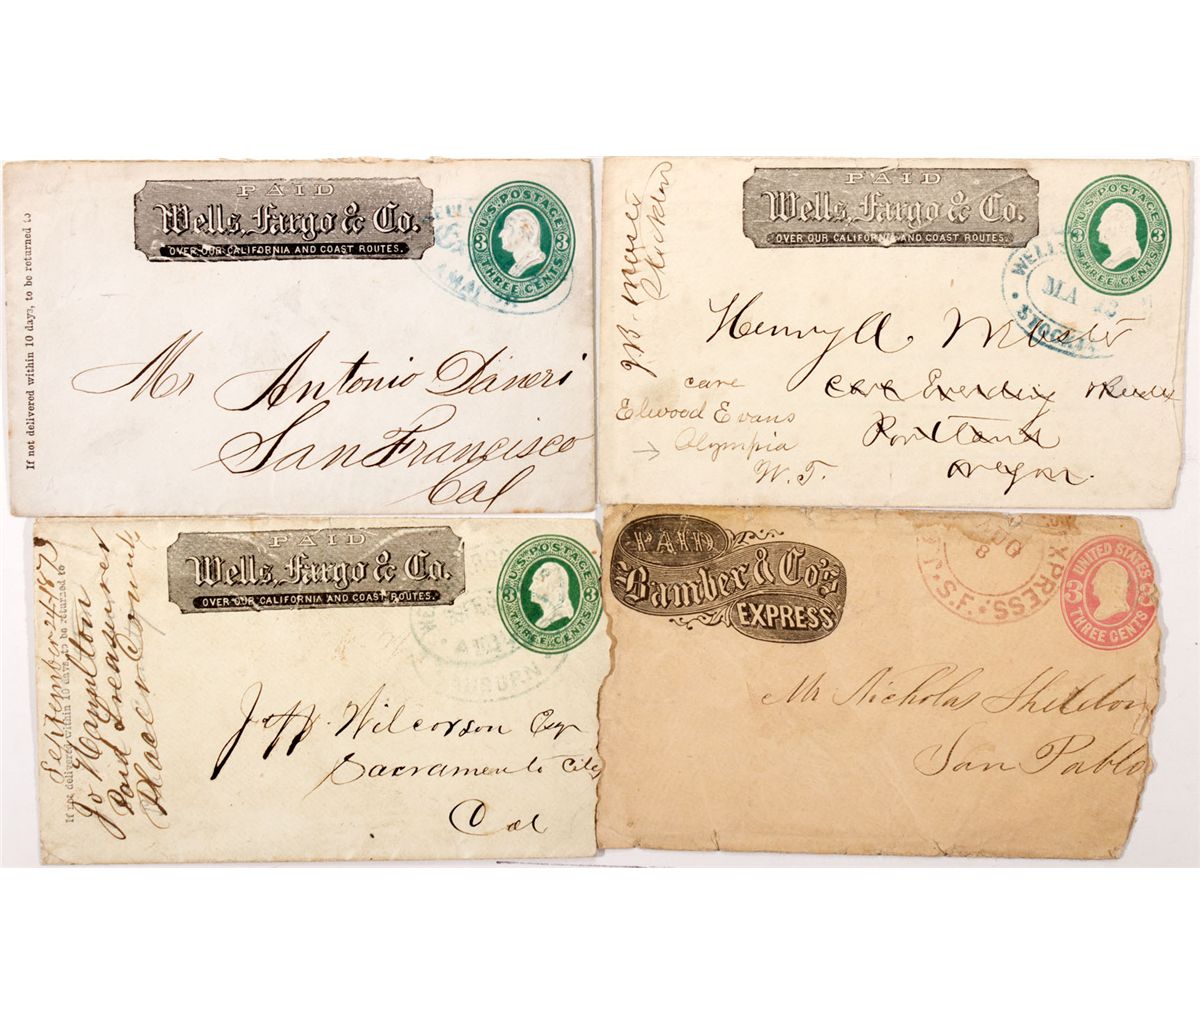 If not delivered within 10 days, to be returned to
PAID
Wells, Fargo & Co.
OVER OUR CALIFORNIA AND COAST ROUTES.
U.S. POSTAGE
3 3
THREE CENTS
Mr Antonio Daneri
San Francisco
Cal
PAID
Wells, Fargo & Co.
OVER OUR CALIFORNIA AND COAST ROUTES.
U.S. POSTAGE
3 3
THREE CENTS
WELLS
Henry A
care
Elwood Evans
Olympia
W. T.
Portland
Oregon.
PAID
Wells, Fargo & Co.
OVER OUR CALIFORNIA AND COAST ROUTES.
U.S. POSTAGE
3 3
THREE CENTS
AUBURN
If not delivered within 10 days, to be returned to
September 24 1873
Jo Hamilton
Paid Treasurer
Placer County
Jeff. Wilcoxson Esqr
Sacramento City
Cal
PAID
Bamber & Co's
EXPRESS
EXPRESS
8
S.F.
UNITED STATES
3
THREE CENTS
Mr Nicholas Sheldon
San Pablo